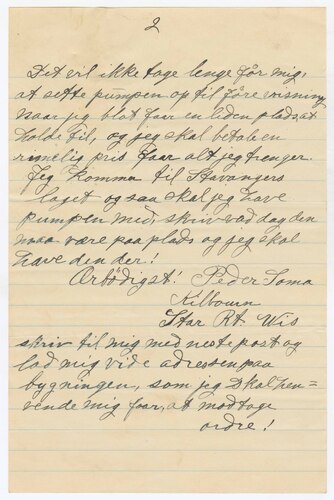 2
Det vil ikke tage lenge før mig,
at sette pumpen op til føre visning
naar jeg blot faar en liden plads, at
holde til, og jeg skal betale en
rimelig pris faar alt jeg trenger.
Jeg Komma til Stavangers
laget og saa skal jeg have
pumpen med, skriv vad dag den
maa være paa plads og jeg skal
have den der!
Ærbödigst! Peder Soma
Kilbourn
Star Rt Wis
skriv til mig med neste post og
lad mig vide adressen paa
bygningen, som jeg skal hen=
vende mig faar, at modtage
ordre!